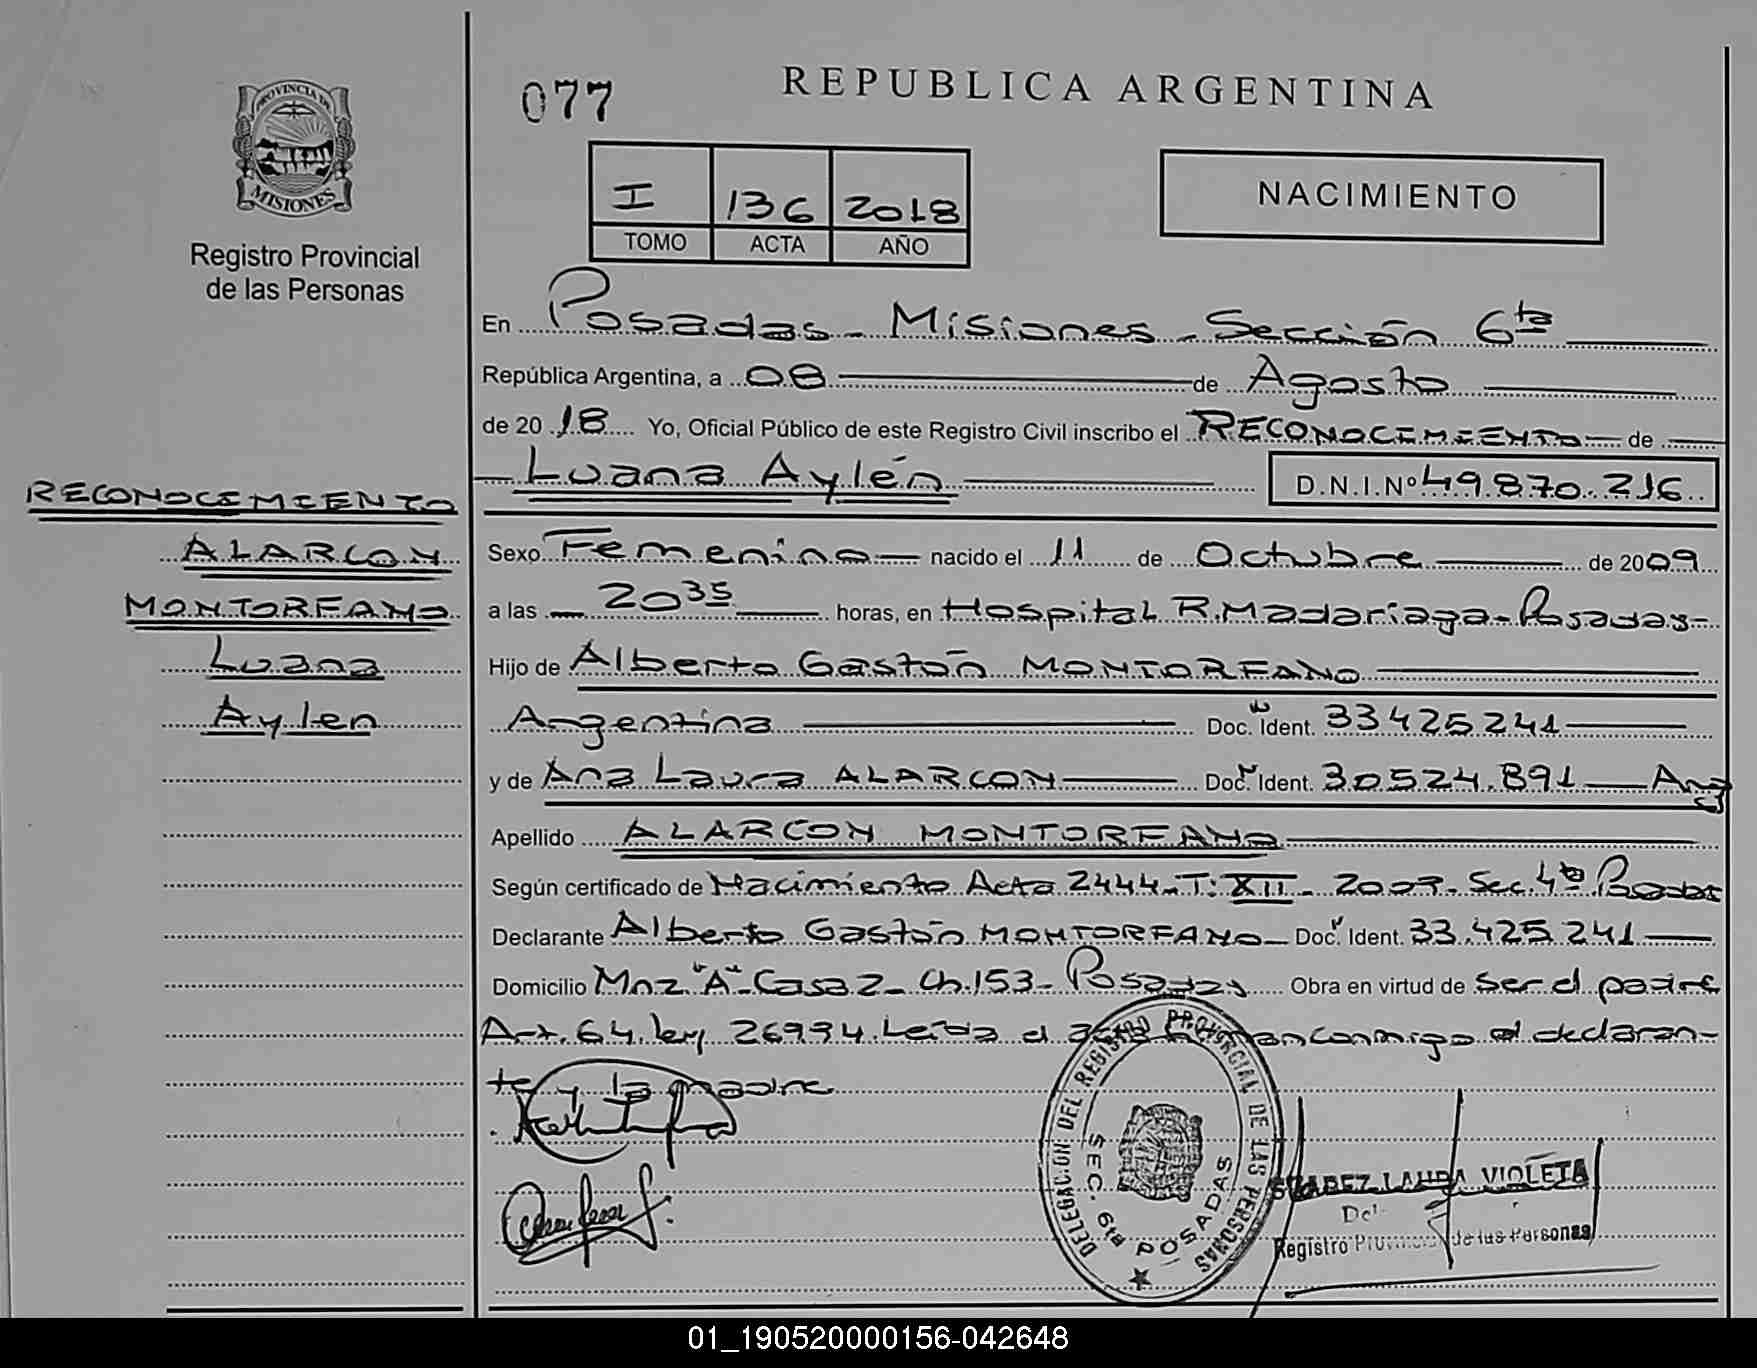 PROVINCIA DE
MISIONES
Registro Provincial
de las Personas
077
REPUBLICA ARGENTINA
I 136 2018
TOMO ACTA AÑO
NACIMIENTO
En Posadas - Misiones - Sección 6ta
República Argentina, a 08 de Agosto
de 2018 Yo, Oficial Público de este Registro Civil inscribo el RECONOCIMIENTO de
Luana Aylén D.N.I.Nº 49.870.216
Sexo Femenino nacido el 11 de Octubre de 2009
a las 20 35 horas, en Hospital R. Madariaga - Posadas -
Hijo de Alberto Gastón MONTORFANO
Argentina Doc. Ident. 33425241
y de Ana Laura ALARCON Doc. Ident. 30524.891 Arg
Apellido ALARCON MONTORFANO
Según certificado de Nacimiento Acta 2444 - T: XII - 2009 - Sec. 4ta Posadas
Declarante Alberto Gastón MONTORFANO - Doc. Ident. 33.425.241
Domicilio Mnz "A" - Casa 2 - Ch. 153 - Posadas Obra en virtud de ser el padre
Art. 64. ley 26994. Leída el acta conmigo el declaran-
te y la madre
RECONOCIMIENTO
ALARCON
MONTORFANO
Luana
Aylen
DELEGACION DEL REGISTRO PROVINCIAL DE LAS PERSONAS
SEC. 6ta POSADAS
LAURA VIOLETA
Registro de las Personas
01_190520000156-042648